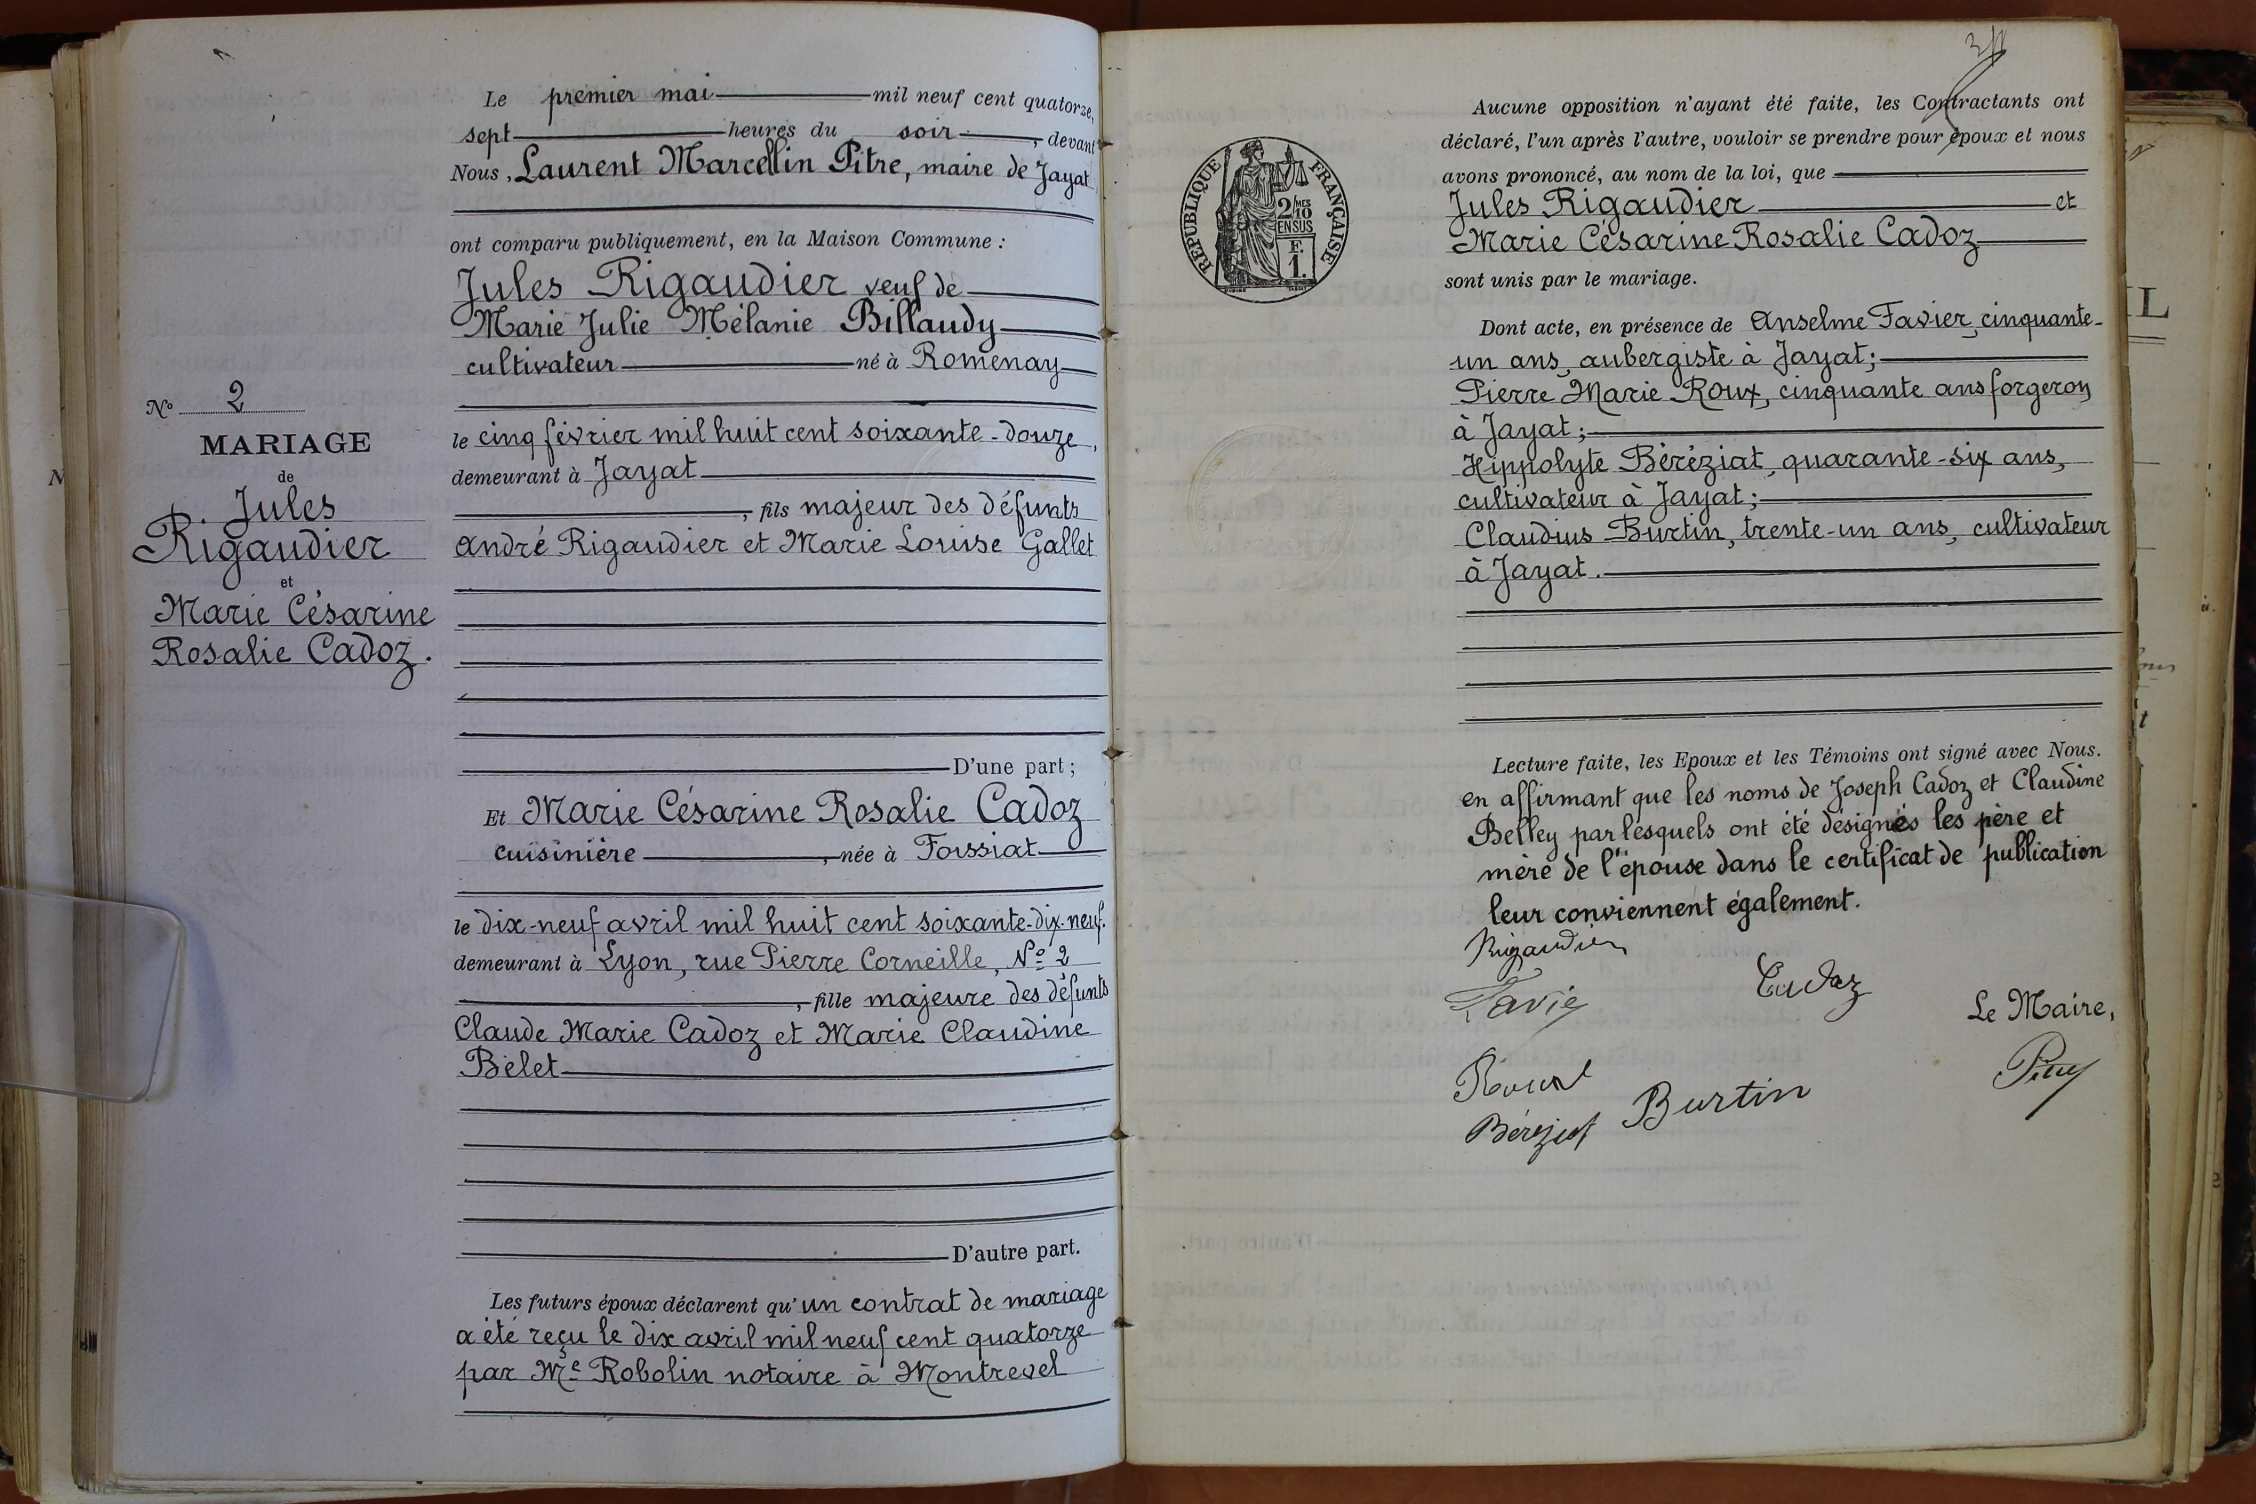 Le premier mai mil neuf cent quatorze,
sept heures du soir, devant
Nous, Laurent Marcellin Pitre, maire de Jayat
ont comparu publiquement, en la Maison Commune :
Jules Rigaudier veuf de
Marie Julie Mélanie Billaudy
cultivateur né à Romenay
le cinq février mil huit cent soixante-douze,
demeurant à Jayat
, fils majeur des défunts
André Rigaudier et Marie Louise Gallet
D'une part ;
Et Marie Césarine Rosalie Cadoz
cuisinière, née à Foissiat
le dix-neuf avril mil huit cent soixante-dix-neuf.
demeurant à Lyon, rue Pierre Corneille, No 2
, fille majeure des défunts
Claude Marie Cadoz et Marie Claudine
Belet
D'autre part.
Les futurs époux déclarent qu'un contrat de mariage
a été reçu le dix avril mil neuf cent quatorze
par Me Robolin notaire à Montrevel
No 2
MARIAGE
de
Jules
Rigaudier
et
Marie Césarine
Rosalie Cadoz.
RÉPUBLIQUE FRANÇAISE
2/10MES
EN SUS
F.
1.
Aucune opposition n'ayant été faite, les Contractants ont
déclaré, l'un après l'autre, vouloir se prendre pour époux et nous
avons prononcé, au nom de la loi, que
Jules Rigaudier et
Marie Césarine Rosalie Cadoz
sont unis par le mariage.
Dont acte, en présence de Anselme Favier, cinquante-
un ans, aubergiste à Jayat;
Pierre Marie Roux, cinquante ans forgeron
à Jayat;
Hippolyte Béréziat, quarante-six ans,
cultivateur à Jayat;
Claudius Burtin, trente-un ans, cultivateur
à Jayat.
Lecture faite, les Epoux et les Témoins ont signé avec Nous.
en affirmant que les noms de Joseph Cadoz et Claudine
Belley par lesquels ont été désignés les père et
mère de l'épouse dans le certificat de publication
leur conviennent également.
Rigaudier
Favier
Cadoz
Le Maire,
Roux
Pitre
Béréziat
Burtin